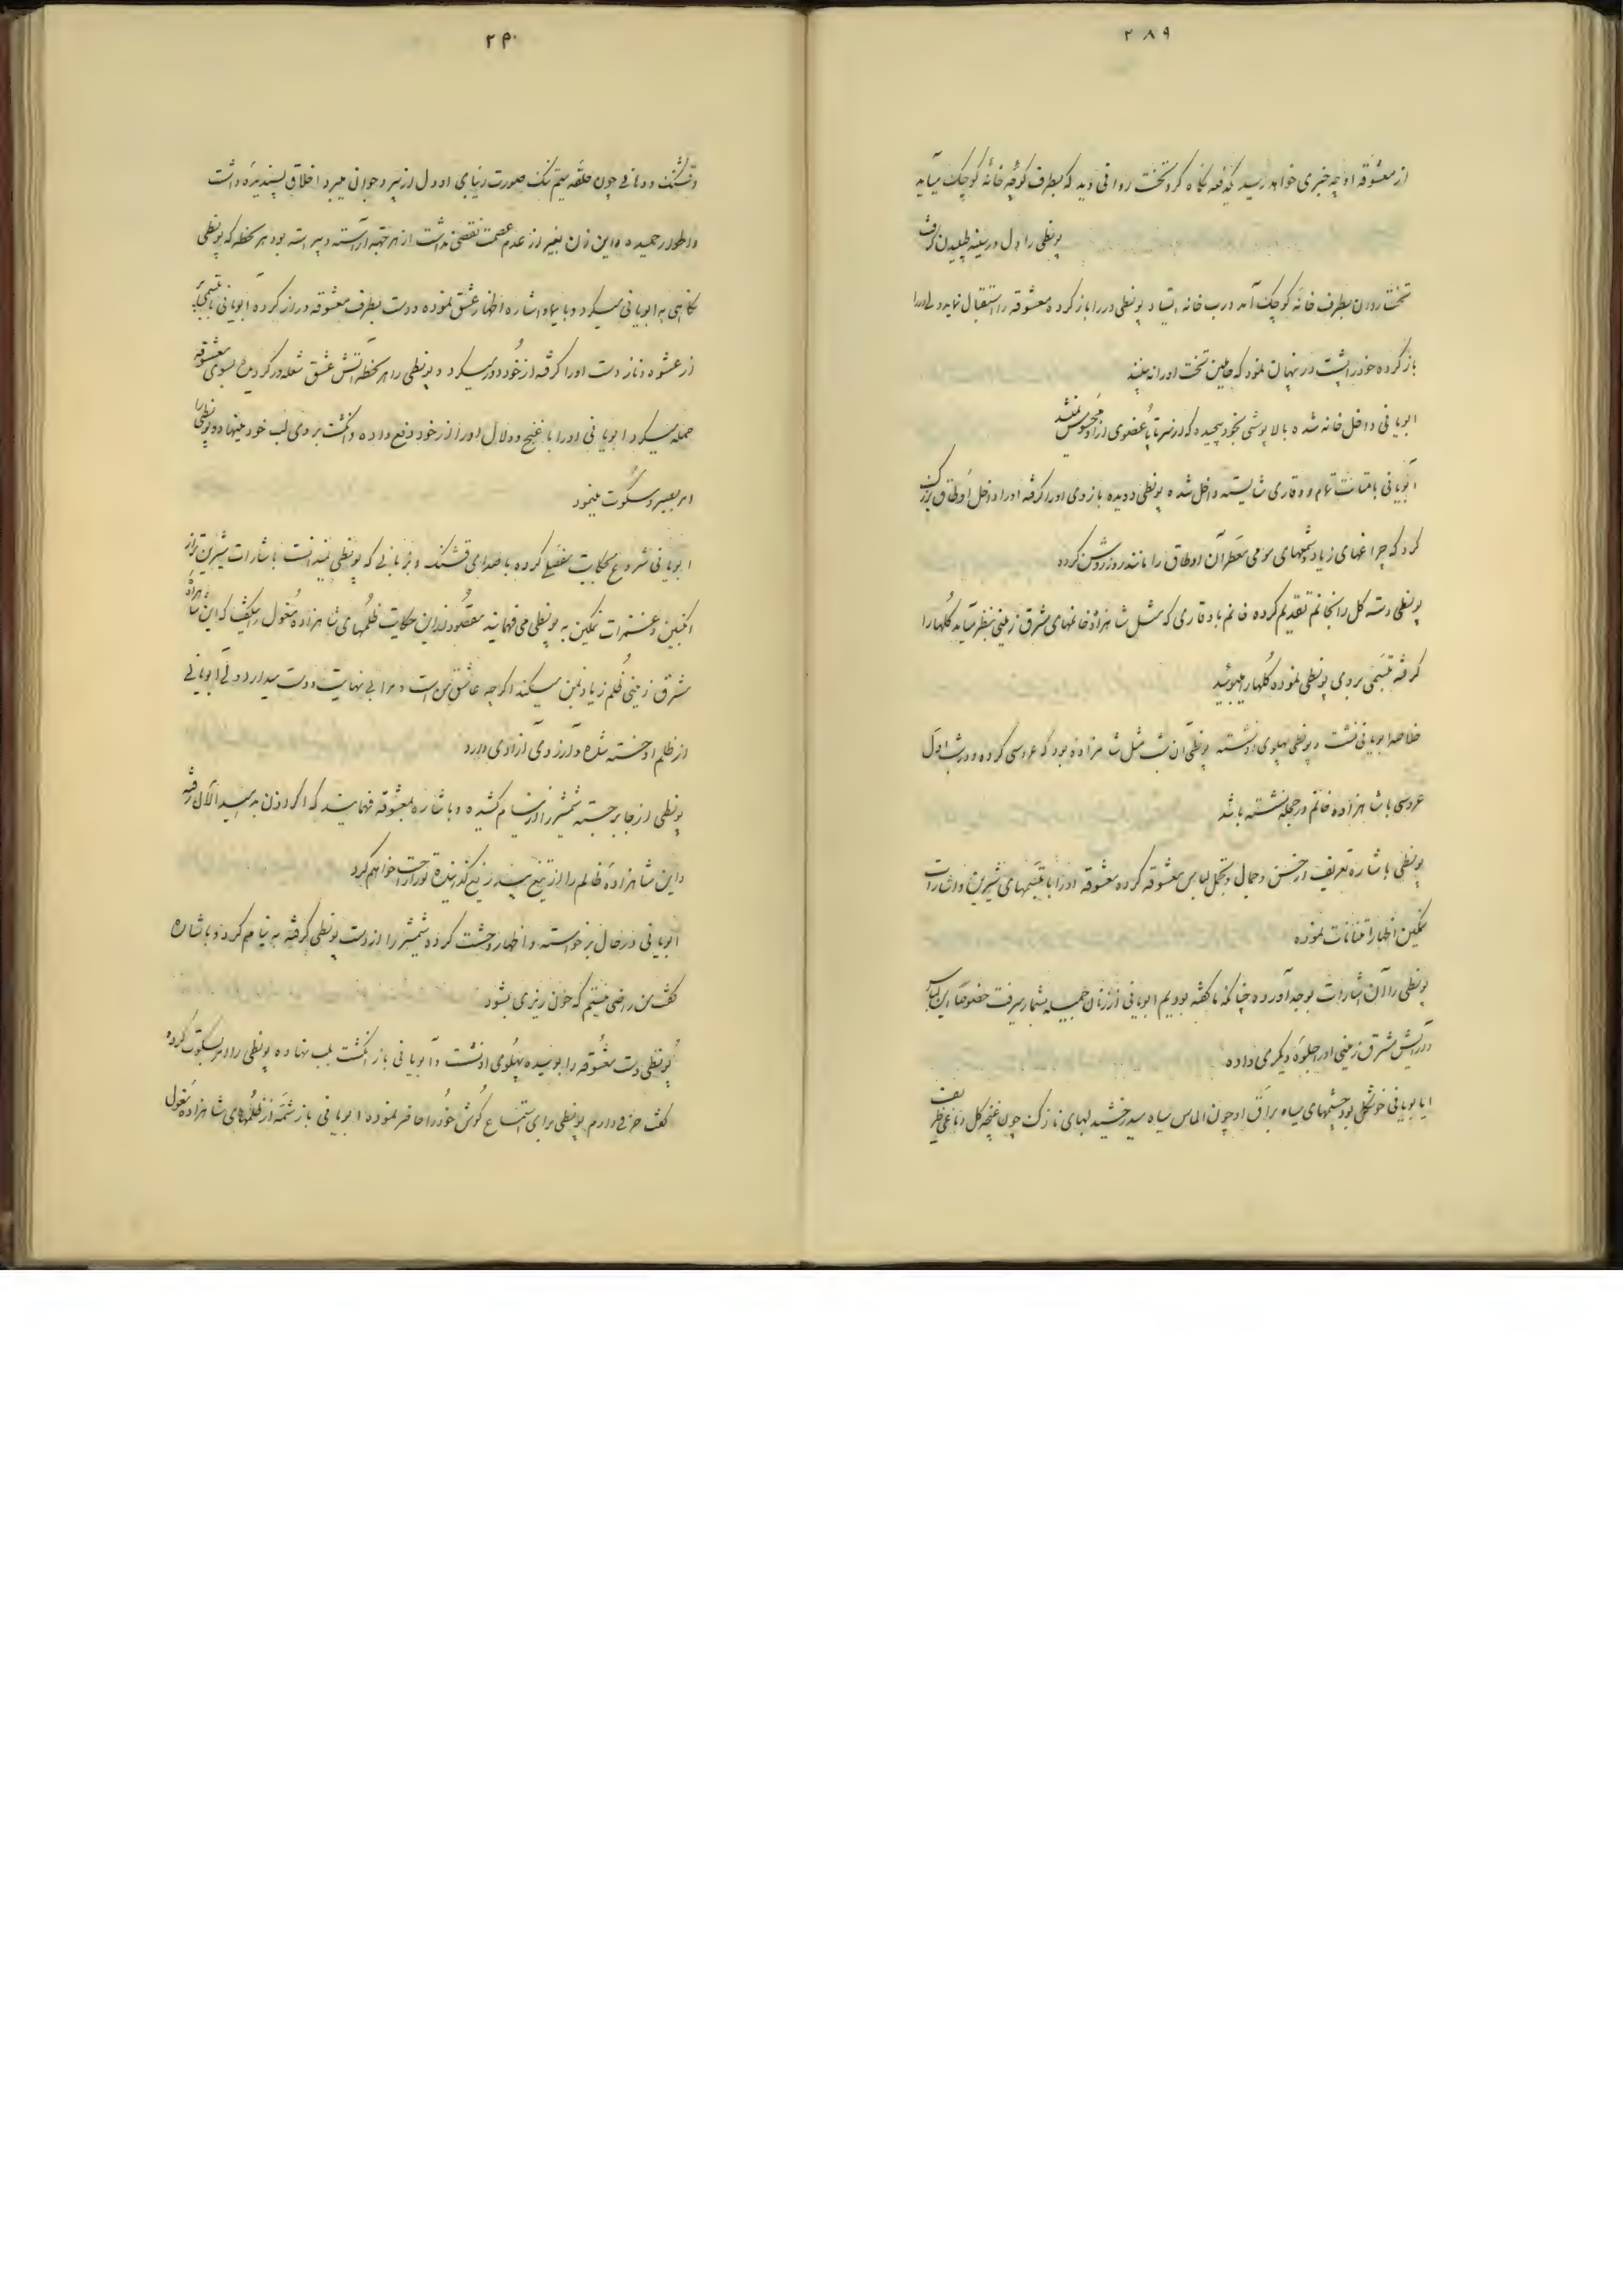 ۲۸۹
از معشوقه او چه خبری خواهد رسید یکدفعه نگاه کرد تخت روانی دید که بطرف کوچه خانه کوچک میآید
پونطی را دل در سینه طپیدن گرفت
تخت روان بطرف خانه کوچک آمد درب خانه ایستاد پونطی در را باز کرده معشوقه را استقبال نماید ولی در را
باز کرده خود را پشت در پنهان نمود که حاملین تخت او را نه بینند
ابویانی داخل خانه شده بالاپوشی بخود پیچیده که از سر تا پا عضوی از او محسوس نمیشد
ابویانی با متانت تمام و وقاری شایسته داخل شده پونطی دویده بازوی او را گرفته او را داخل اوطاق بزرگی
کرد که چراغهای زیاد و شمعهای مومی معطر آن اوطاق را مانند روز روشن کرده
پونطی دسته گل را بخانم تقدیم کرده خانم با وقاری که مثل شاهزاده خانمهای مشرق زمینی بنظر میآید گلها را
گرفته تبسمی بروی پونطی نموده گلها را میبوئید
خلاصه ابویانی نشست و پونطی پهلوی او نشسته پونطی آن شب مثل شاهزاده بود که عروسی کرده و در شب اول
عروسی با شاهزاده خانم در حجله نشسته باشد
پونطی با شاره تعریف از حسن و جمال و تجمل لباس معشوقه کرده معشوقه او را با تبسمهای شیرین و اشارات
نمکین اظهار امتنانات نموده
پونطی را آن اشارات بوجد آورده چنانکه ما گفته بودیم ابویانی از زنان جمیله بشمار میرفت خصوصا این لباس
و آرایش مشرق زمینی او را جلوه دیگری داده
ابویانی خوشگل بود چشمهای سیاه براق او چون الماس سیاه میدرخشید لبهای نازک چون غنچه گل دماغی ظریف
۲۹۰
و قشنگ و دهانی چون حلقه میم تنک صورت زیبای او دل از پیر و جوان میبرد اخلاق پسندیده داشت
و اطوار حمیده و این زن بغیر از عدم عصمت نقصی نداشت از هر جهة آراسته و پیراسته بود هر لحظه که پونطی
نگاهی به ابویانی میکرد و با ایما و اشاره اظهار عشق نموده و دست بطرف معشوقه دراز کرده ابویانی با تبسمی
از عشوه و ناز دست او را گرفته از خود دور میکرد و پونطی را هر لحظه آتش عشق شعله ور گردیده بسوی معشوقه
حمله میکرد ابویانی او را با غنج و دلال او را از خود دفع داده و انگشت بروی لب خود مینهاد و پونطی را
امر بصبر و سکوت مینمود
ابویانی شروع بحکایت مفصلی کرده با صدای قشنگ و بزبانی که پونطی نمیدانست با شارات شیرین تر از
انگبین و غمزات نمکین به پونطی می فهمانید مقصود از این حکایت ظلمهای شاهزاده مغول میگفت که این شاهزاده
مشرق زمینی ظلم زیاد بمن میکند اگرچه عاشق من است و مرا بی نهایت دوست میدارد ولی ابویانی
از ظلم او خسته شده و آرزوی آزادی دارد
پونطی از جا برجسته شمشیر را از نیام کشیده و با شاره بمعشوقه فهمانید که اگر اذن بدهید الآن رفته
و این شاهزاده ظالم را از تیغ بیدریغ گذرانیده تو را راحت خواهم کرد
ابویانی در حال برخواسته و اظهار وحشت کرده شمشیر را از دست پونطی گرفته به نیام کرد و با شاره
گفت من راضی نیستم که خون ریزی بشود
پونطی دست معشوقه را بوسیده پهلوی او نشست و ابویانی باز انگشت بلب نهاده پونطی را امر بسکوت کرده
گفت حرفی دارم پونطی برای استماع گوش خود را حاضر نموده ابویانی باز شمه از ظلمهای شاهزاده مغول